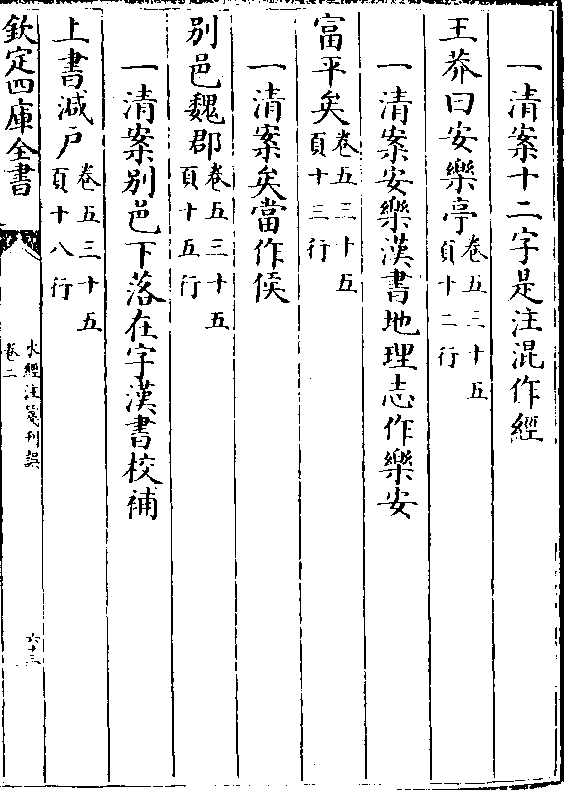 一清案十二字是注混作經
王莽曰安樂亭卷五三十五頁十二行
一清案安樂漢書地理志作樂安
富平矣卷五三十五頁十三行
一清案矣當作侯
别邑魏郡卷五三十五頁十五行
一清案别邑下落在字漢書校補
上書減戶卷五三十五頁十八行
欽定四庫全書
水經注箋刋誤
卷二
六十三